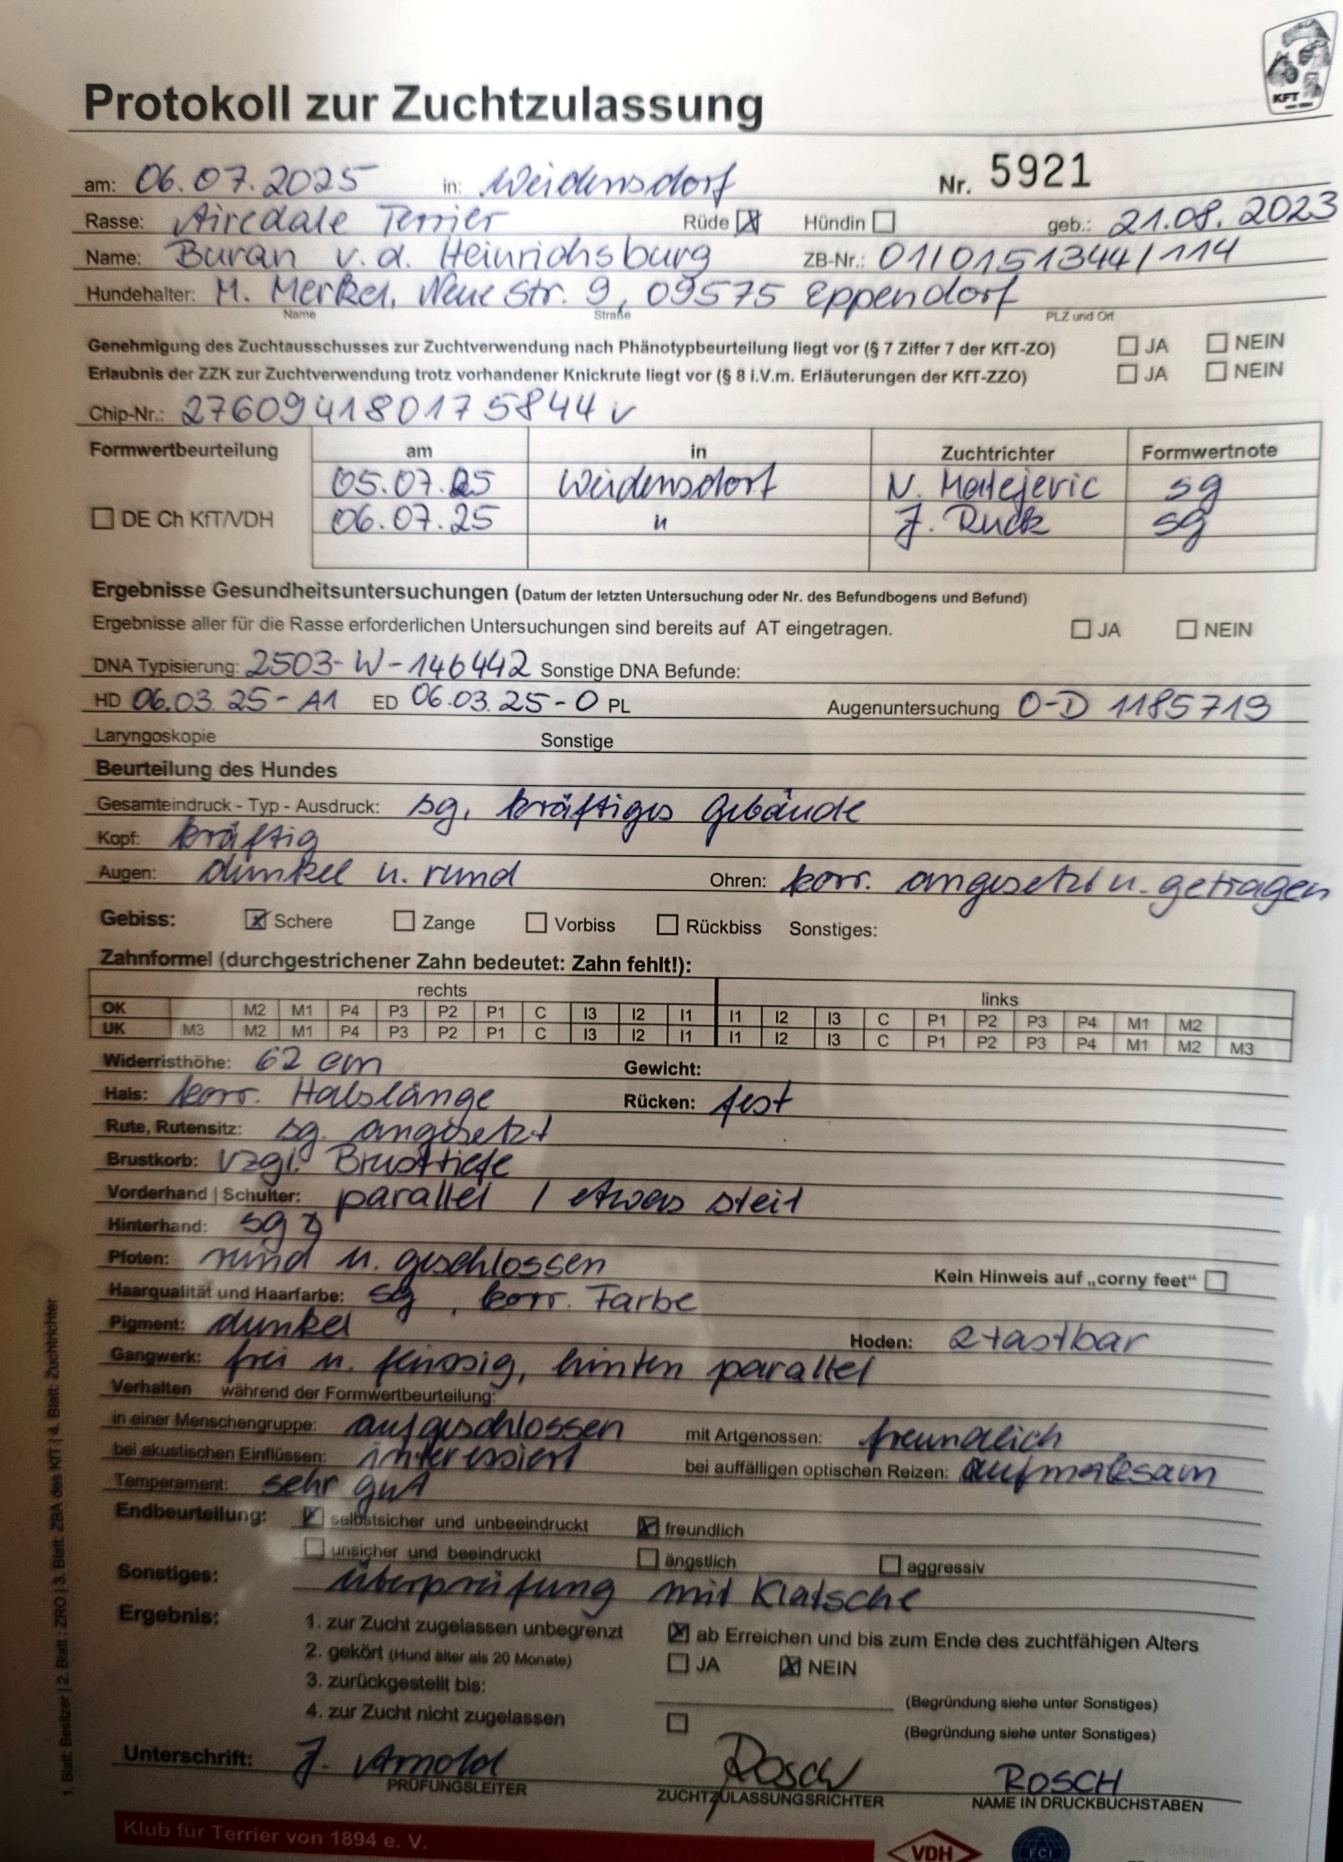 KFT
Protokoll zur Zuchtzulassung
am: 06.07.2025 in: Weidensdorf Nr. 5921
Rasse: Airedale Terrier Rüde ☒ Hündin ☐ geb.: 21.08.2023
Name: Buran v.d. Heinrichsburg ZB-Nr.: 01/0151344/114
Hundehalter: M. Merkel, Neue Str. 9, 09575 Eppendorf
Name Straße PLZ und Ort
Genehmigung des Zuchtausschusses zur Zuchtverwendung nach Phänotypbeurteilung liegt vor (§ 7 Ziffer 7 der KfT-ZO) ☐ JA ☐ NEIN
Erlaubnis der ZZK zur Zuchtverwendung trotz vorhandener Knickrute liegt vor (§ 8 i.V.m. Erläuterungen der KfT-ZZO) ☐ JA ☐ NEIN
Chip-Nr.: 276094180175844 v
Formwertbeurteilung am in Zuchtrichter Formwertnote
05.07.25 Weidensdorf N. Matejevic sg
☐ DE Ch KfT/VDH 06.07.25 " J. Ruck sg
Ergebnisse Gesundheitsuntersuchungen (Datum der letzten Untersuchung oder Nr. des Befundbogens und Befund)
Ergebnisse aller für die Rasse erforderlichen Untersuchungen sind bereits auf AT eingetragen. ☐ JA ☐ NEIN
DNA Typisierung: 2503-W-146442 Sonstige DNA Befunde:
HD 06.03.25-A1 ED 06.03.25-0 PL Augenuntersuchung O-D 1185719
Laryngoskopie Sonstige
Beurteilung des Hundes
Gesamteindruck - Typ - Ausdruck: sg, kräftiges Gebäude
Kopf: kräftig
Augen: dunkel u. rund Ohren: korr. angesetzt u. getragen
Gebiss: ☒ Schere ☐ Zange ☐ Vorbiss ☐ Rückbiss Sonstiges:
Zahnformel (durchgestrichener Zahn bedeutet: Zahn fehlt!):
rechts links
OK M2 M1 P4 P3 P2 P1 C I3 I2 I1 I1 I2 I3 C P1 P2 P3 P4 M1 M2
UK M3 M2 M1 P4 P3 P2 P1 C I3 I2 I1 I1 I2 I3 C P1 P2 P3 P4 M1 M2 M3
Widerristhöhe: 62 cm Gewicht:
Hals: korr. Halslänge Rücken: fest
Rute, Rutensitz: sg. angesetzt
Brustkorb: vzgl. Brusttiefe
Vorderhand | Schulter: parallel / etwas steil
Hinterhand: sg
Pfoten: rund u. geschlossen Kein Hinweis auf „corny feet“ ☐
Haarqualität und Haarfarbe: sg, korr. Farbe
Pigment: dunkel Hoden: 2 tastbar
Gangwerk: frei u. flüssig, hinten parallel
Verhalten während der Formwertbeurteilung:
in einer Menschengruppe: aufgeschlossen mit Artgenossen: freundlich
bei akustischen Einflüssen: interessiert bei auffälligen optischen Reizen: aufmerksam
Temperament: sehr gut
Endbeurteilung: ☒ selbstsicher und unbeeindruckt ☒ freundlich
☐ unsicher und beeindruckt ☐ ängstlich ☐ aggressiv
Sonstiges: Überprüfung mit Klatsche
Ergebnis: 1. zur Zucht zugelassen unbegrenzt ☒ ab Erreichen und bis zum Ende des zuchtfähigen Alters
2. gekört (Hund älter als 20 Monate) ☐ JA ☒ NEIN
3. zurückgestellt bis: (Begründung siehe unter Sonstiges)
4. zur Zucht nicht zugelassen ☐ (Begründung siehe unter Sonstiges)
Unterschrift: J. Arnold Rosch ROSCH
PRÜFUNGSLEITER ZUCHTZULASSUNGSRICHTER NAME IN DRUCKBUCHSTABEN
1. Blatt: Besitzer | 2. Blatt: ZRO | 3. Blatt: ZBA des KfT | 4. Blatt: Zuchtrichter
Klub für Terrier von 1894 e. V.
VDH
FCI